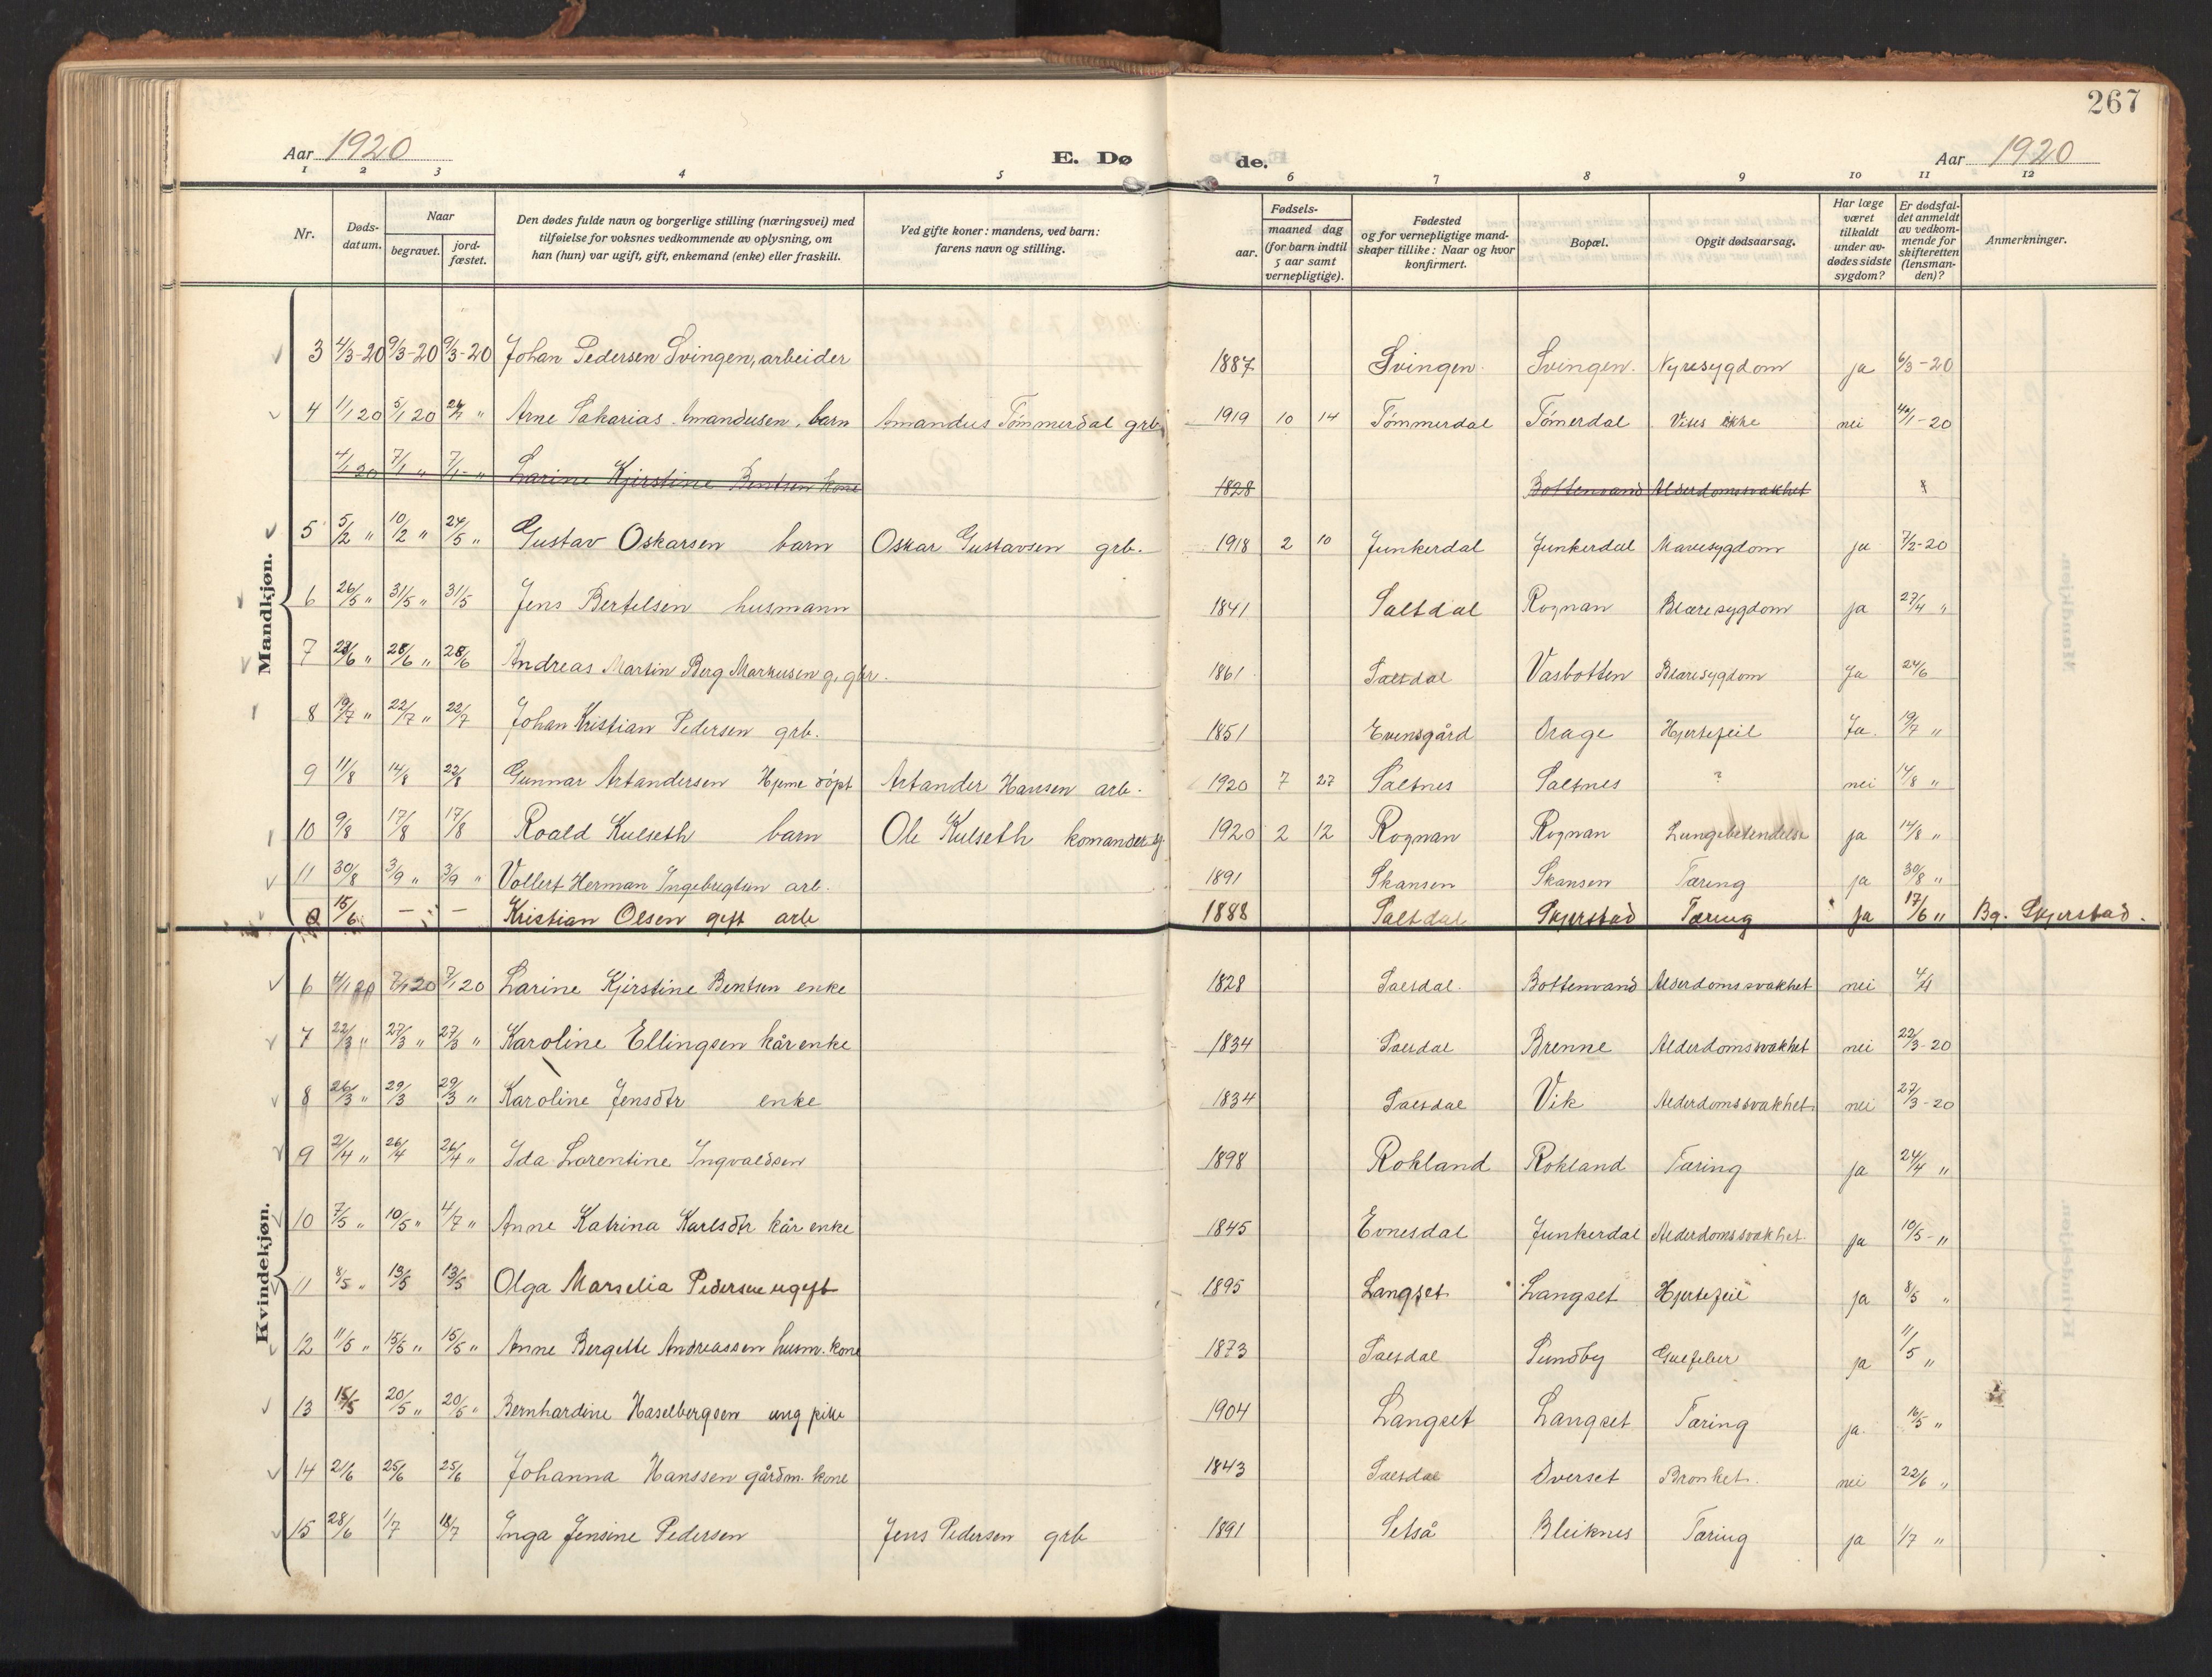 267
Aar 1920 E. Dø de. Aar 1920
1 2 3 4 5 6 7 8 9 10 11 12
Nr. Døds-datum. Naar begravet. jord-fæstet. Den dødes fulde navn og borgerlige stilling (næringsvei) med tilføielse for voksnes vedkommende av oplysning, om han (hun) var ugift, gift, enkemand (enke) eller fraskilt. Ved gifte koner: mandens, ved barn: farens navn og stilling. Fødsels- aar. maaned dag (for barn indtil 5 aar samt vernepligtige). Fødested og for vernepligtige mand-skaper tillike: Naar og hvor konfirmert. Bopæl. Opgit dødsaarsag. Har læge været tilkaldt under av-dødes sidste sygdom? Er dødsfal-det anmeldt av vedkom-mende for skifteretten (lensman-den)? Anmerkninger.
Mandkjøn.
3 4/3-20 9/3-20 9/3-20 Johan Pedersen Svingen, arbeider 1887 Svingen Svingen Nyresygdom ja 6/3-20
4 1/1 20 5/1 20 Arne Sakarias Amandusen, barn Amandus Tømmerdal grb 1919 10 14 Tømmerdal Tømerdal Vites ikke nei
4/1 20 7/1 " 7/1 - " Larine Kjerstine Bentsen kone 1828 Bottenvand Alderdomssvakhet
5 5/2 " 10/2 " 24/5 " Gustav Oskarsen barn Oskar Gustavsen grb. 1918 2 10 Junkerdal Junkerdal Mavesygdom ja 7/2-20
6 26/5 " 31/5 " 31/5 Jens Bertelsen husmann 1841 Saltdal Rognan Blæresygdom ja 27/4 "
7 23/6 " 28/6 " 28/6 Andreas Martin Berg Markusen g. gbr. 1861 Saltdal Vasbotten Blæresygdom Ja 24/6
8 19/7 " 22/7 " 22/7 Johan Kristian Pedersen grb. 1851 Evensgård Drage Hjertefeil Ja. 19/7 "
9 11/8 14/8 22/8 Gunnar Artandersen Hjeme døpt Artander Hansen arb. 1920 7 27 Saltnes Saltnes ? nei 14/8 "
10 9/8 17/8 17/8 Roald Kulseth barn Ole Kulseth 1920 2 12 Rognan Rognan Lungebetendelse ja 14/8 "
11 30/8 3/9 " 3/9 " Vollert Herman Ingebregtsen arb. 1891 Skansen Skansen Tæring ja 30/8 "
15/6 - - Kristian Olsen gift arb 1888 Saltdal Skjerstad Tæring ja 17/6 " Bg. Skjerstad.
Kvindekjøn.
6 4/1 20 7/1 20 7/1 20 Larine Kjerstine Bentsen enke 1828 Saltdal. Bottenvand Alderdomssvakhet nei 4/1
7 22/3 " 27/3 " 27/3 " Karoline Ellingsen kårenke 1834 Saltdal Brenne Alderdomssvakhet nei 22/3-20
8 26/3 " 29/3 29/3 " Karoline Jensdtr enke 1834 Saltdal Vik Alderdomssvakhet nei 27/3-20
9 21/4 " 26/4 26/4 " Ida Lorentine Ingvaldsen 1898 Rokland Rokland Tæring ja 24/4 "
10 7/5 " 10/5 " 4/7 " Anne Katrina Karlsdtr kårenke 1845 Evnesdal Junkerdal Alderdomssvakhet ja 10/5 - "
11 8/5 " 13/5 13/5 Olga Marselia Pedersen ugift 1895 Langset Langset Hjertefeil ja 8/5 "
12 11/5 " 15/5 " 15/5 " Anne Bergitte Andreassen husm. kone 1873 Saltdal Sundby ja 11/5 "
13 15/5 20/5 " 20/5 " Bernhardine Haselbergsen ung pike 1904 Langset Langset Tæring ja. 16/5 "
14 21/6 25/6 25/6 Johanna Hanssen gårdm. kone 1843 Saltdal Överset Bronket. nei 22/6 "
15 28/6 1/7 18/7 Inga Jensine Pedersen Jens Pedersen grb 1891 Setså Bleiknes Tæring ja 1/7 "